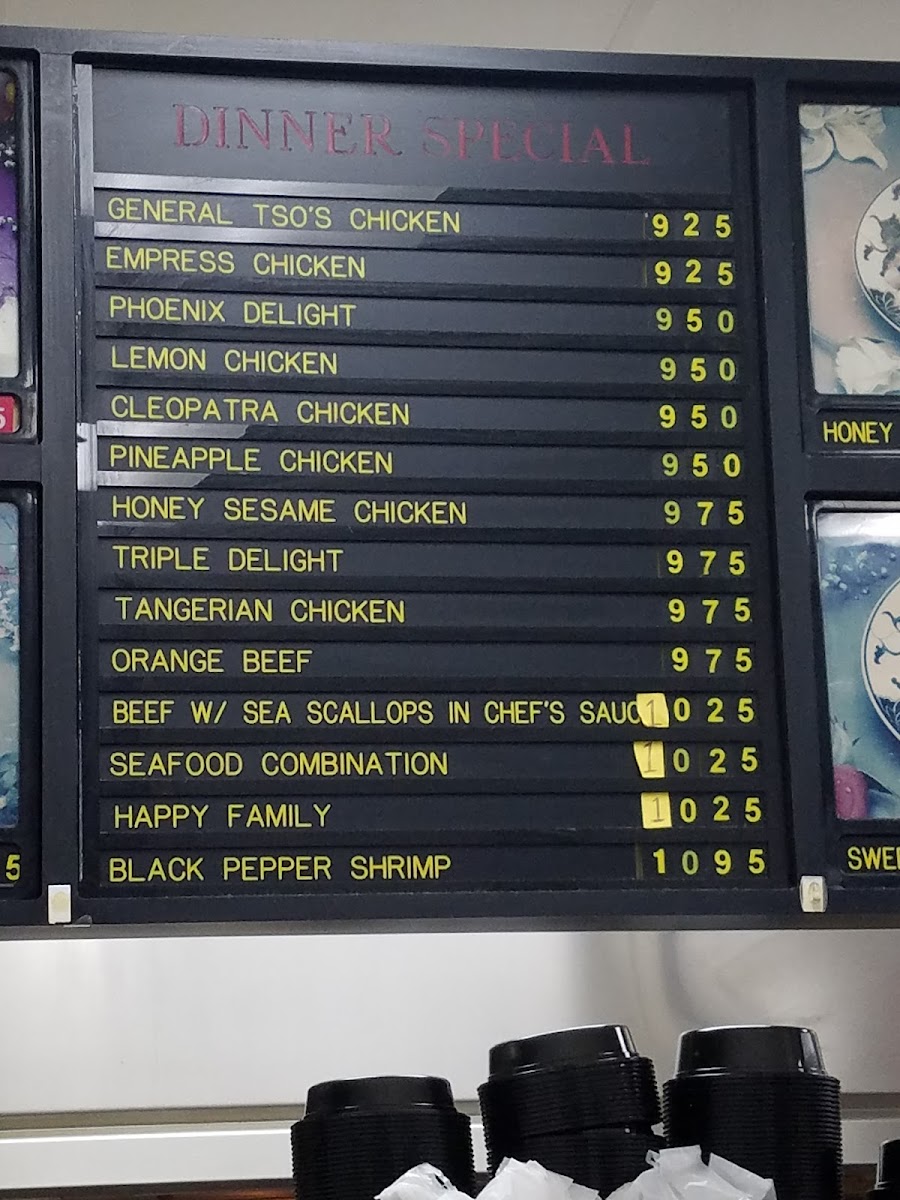 DINNER SPECIAL
GENERAL TSO'S CHICKEN 925
EMPRESS CHICKEN 925
PHOENIX DELIGHT 950
LEMON CHICKEN 950
CLEOPATRA CHICKEN 950
PINEAPPLE CHICKEN 950
HONEY SESAME CHICKEN 975
TRIPLE DELIGHT 975
TANGERIAN CHICKEN 975
ORANGE BEEF 975
BEEF W/ SEA SCALLOPS IN CHEF'S SAUC 1025
SEAFOOD COMBINATION 1025
HAPPY FAMILY 1025
BLACK PEPPER SHRIMP 1095
5
5
HONEY
SWE